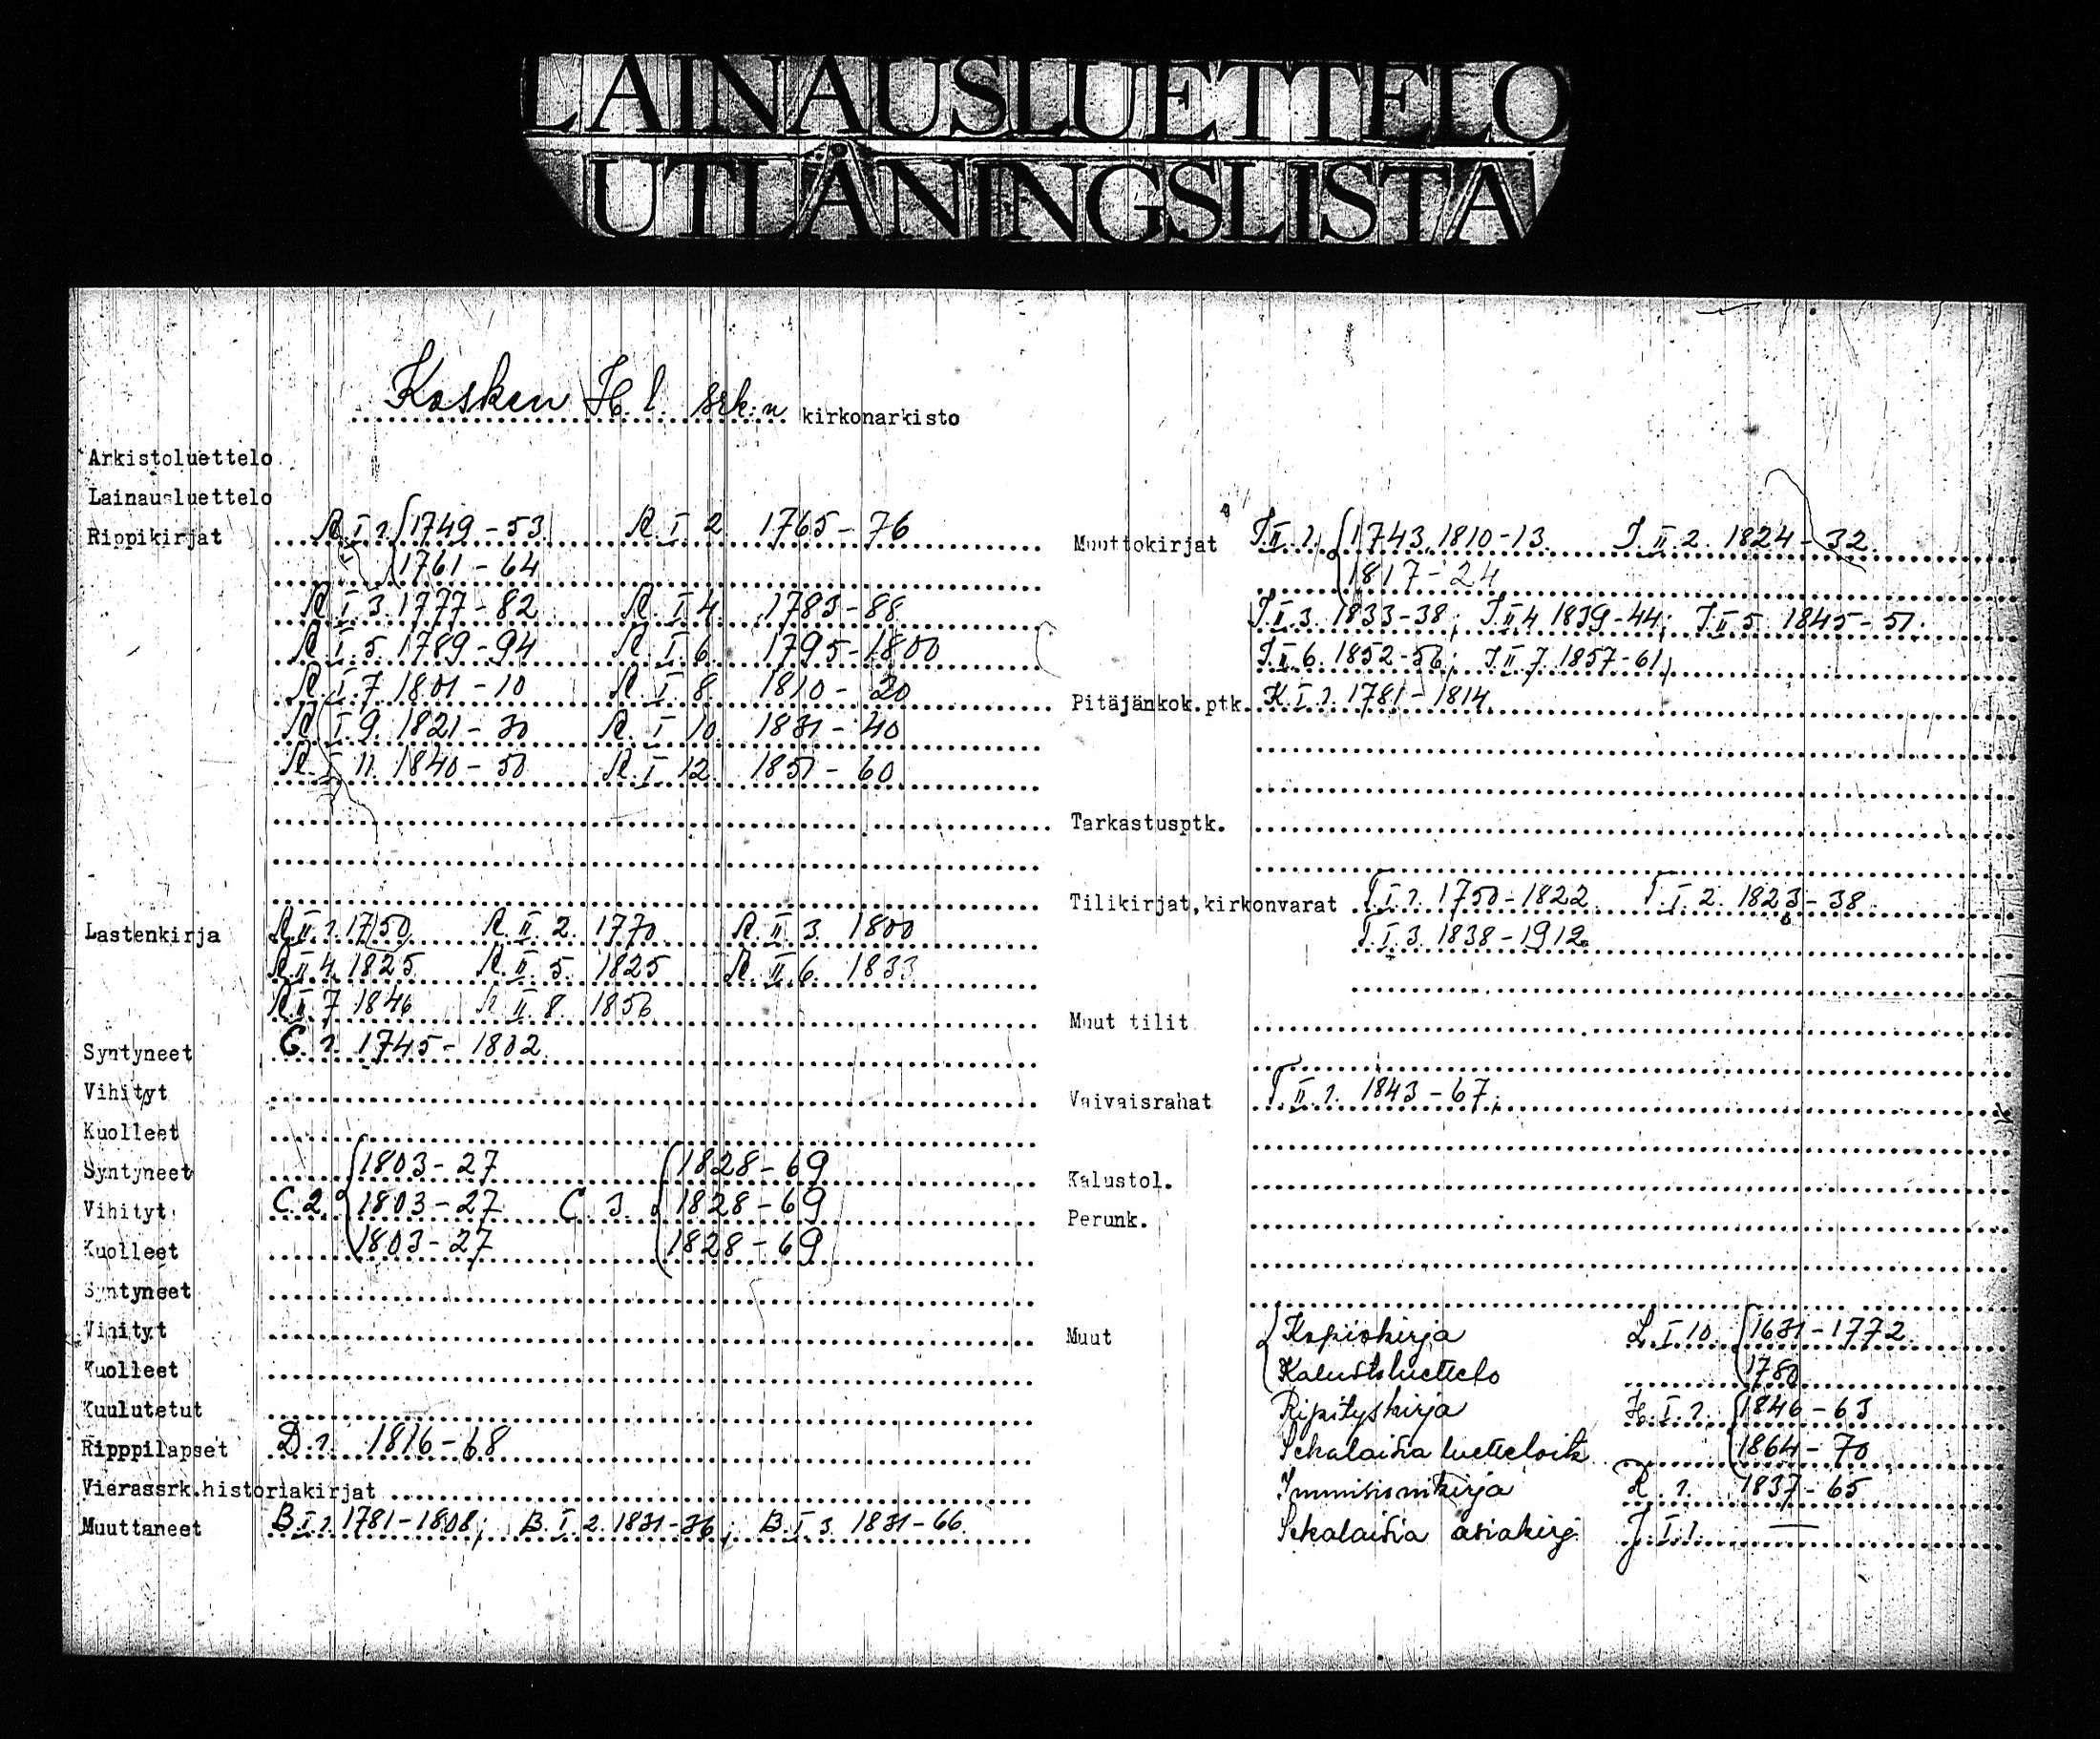 LAINAUSLUETTELO
UTLÅNINGSLISTA
Kosken H.l. srk:n kirkonarkisto
Arkistoluettelo
Lainausluettelo
Rippikirjat R.I 1. 1749-53 R.I 2 1765-76
1761-64
R.I.3. 1777-82 R.I.4. 1783-88
R.I.5. 1789-94 R.I.6. 1795-1800
R.I.7. 1801-10 R.I.8. 1810-20
R.I.9. 1821-30 R.I.10. 1831-40
R.I.11. 1840-50 R.I.12. 1851-60
Lastenkirja R.II.1. 1750 R.II.2. 1770 R.II.3. 1800
R.II.4. 1825 R.II.5. 1825 R.II.6. 1833
R.II.7 1846 R.II.8. 1856
Syntyneet C.1. 1745-1802
Vihityt
Kuolleet
Syntyneet 1803-27 1828-69
Vihityt C.2. 1803-27 C.3. 1828-69
Kuolleet 1803-27 1828-69
Syntyneet
Vihityt
Kuolleet
Kuulutetut
Ripppilapset D.1. 1816-68
Vierassrk.historiakirjat
Muuttaneet B.I.1. 1781-1808; B.I.2. 1831-36; B.I.3. 1831-66.
Muuttokirjat I.II.1. 1743, 1810-13. I.II.2. 1824-32.
1817-24
I.II.3. 1833-38; I.II.4 1839-44; I.II.5. 1845-51.
I.II.6. 1852-56; I.II.7. 1857-61;
Pitäjänkok.ptk. K.I.1. 1781-1814
Tarkastusptk.
Tilikirjat,kirkonvarat T.I.1. 1750-1822 T.I.2. 1823-38
T.I.3. 1838-1912
Muut tilit
Vaivaisrahat T.II.1. 1843-67;
Kalustol.
Perunk.
Muut Kopiokirja L.I.10. 1631-1772.
Kalustoluettelo 1780
Ripityskirja H.I.1. 1846-63
Sekalaisia luetteloita 1864-70
Immisionikirja 1837-65
Sekalaisia asiakirj. J.I.1. —